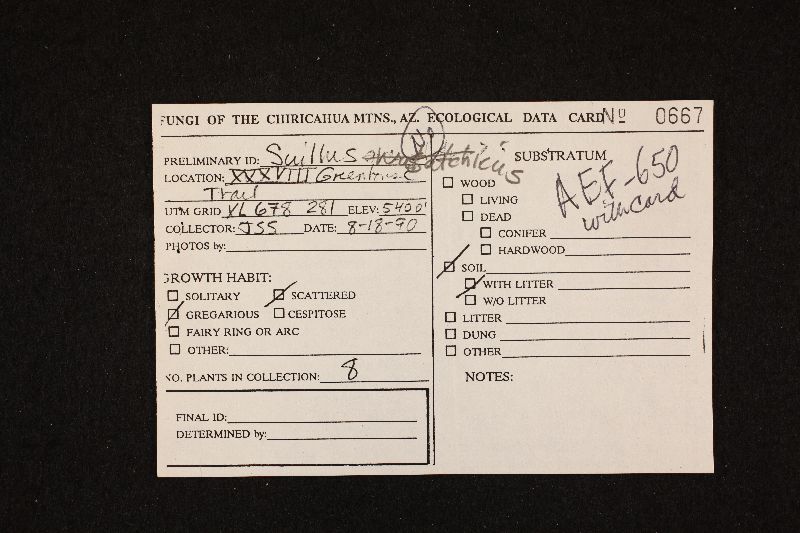 FUNGI OF THE CHIRICAHUA MTNS., AZ. ECOLOGICAL DATA CARD Nº 0667
PRELIMINARY ID: Suillus
NO
LOCATION: XXXVIII Greenhouse
Trail
UTM GRID XL 678 281 ELEV: 5400'
COLLECTOR: JSS DATE: 8-18-90
PHOTOS by:
GROWTH HABIT:
SOLITARY SCATTERED
GREGARIOUS CESPITOSE
FAIRY RING OR ARC
OTHER:
NO. PLANTS IN COLLECTION: 8
FINAL ID:
DETERMINED by:
SUBSTRATUM
AEF-650
with card
WOOD
LIVING
DEAD
CONIFER
HARDWOOD
SOIL
WITH LITTER
W/O LITTER
LITTER
DUNG
OTHER
NOTES: